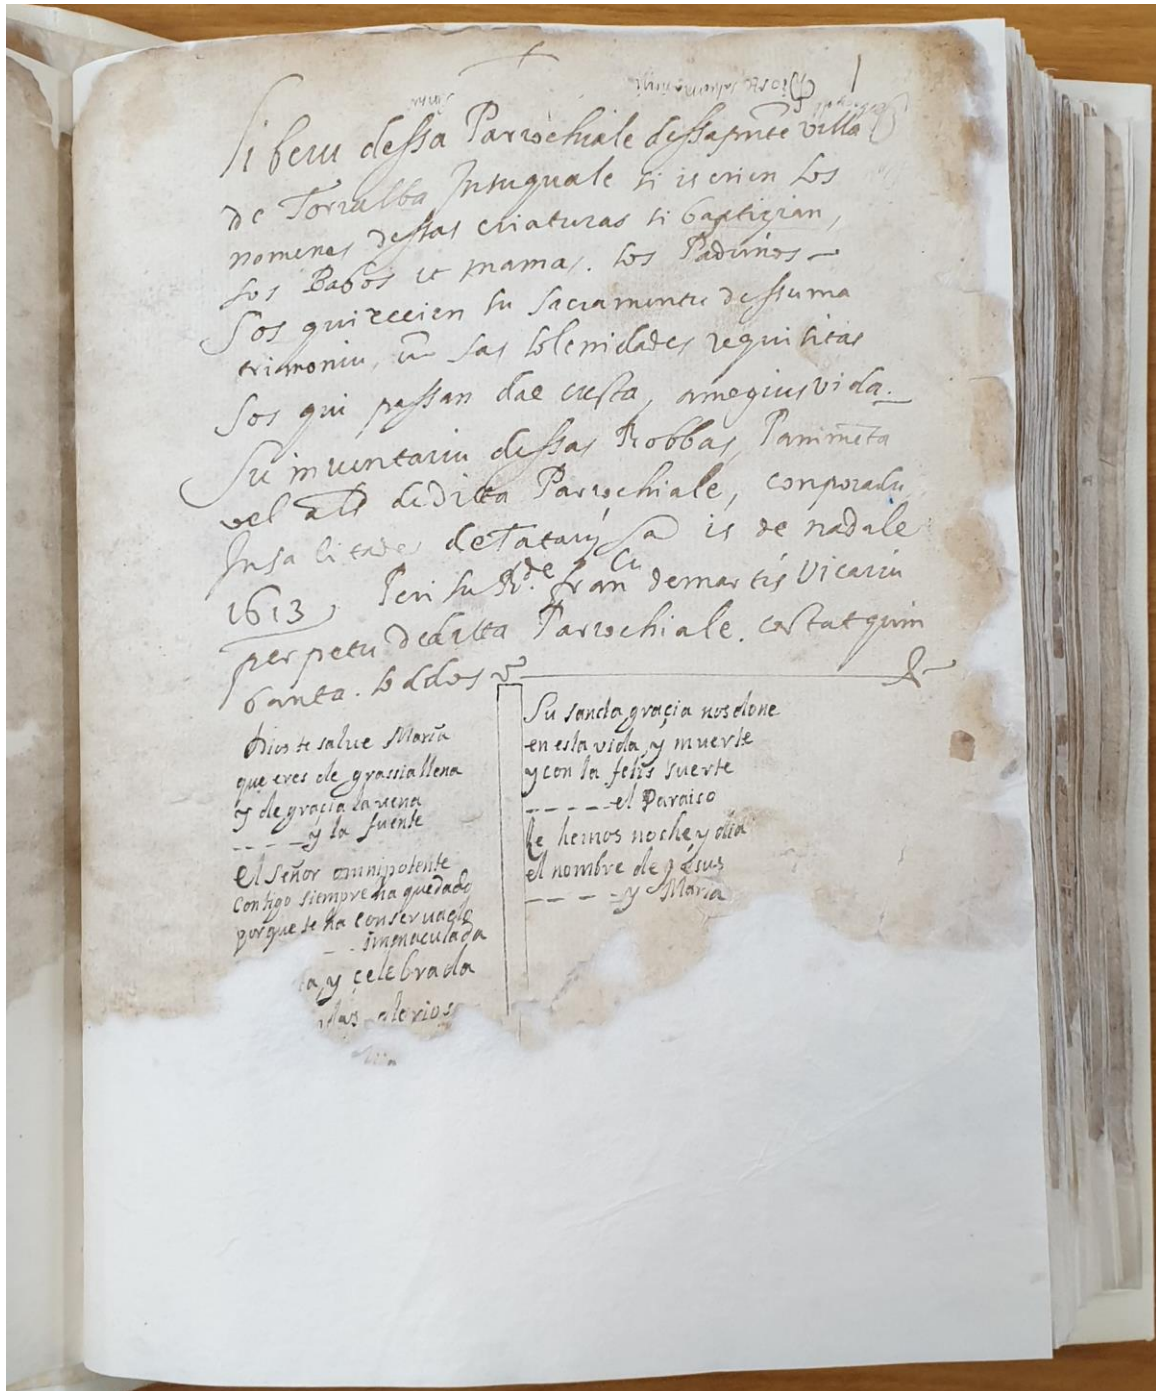 Liberu dessa Parrochiale dessapnte villa
de Torralba Insuquale si iscrien sos
nomenes dessas criaturas si baptizian,
sos Babos et mamas. sos Padrinos
Sos qui recien su sacramentu dessuma
trimoniu, cun sas solenidades requisitas
Sos qui passan dae custa, amegius vida.
Su inventariu dessas Robbas, Paniméta
vel de ditta Parrochiale, conporadu
Insa de nadale
1613, Peri su Rde fran cu demartis Vicariu
perpetu deditta Parrochiale. costat quim
banta. soddos
Dios te salue Maria
que eres de grassia llena
y de graçia la uena
- - - - y la fuente
El Señor omnipotente
contigo siempre ha quedado
porque te ha conseruado
- - immaculada
ta, y çelebrada
Su sancta graçia nos done
en esta vida, y muerte
y con la felis suerte
- - - - - el Paraiso
le hemos noche y dia
el nombre de Jesus
- - - - y Maria